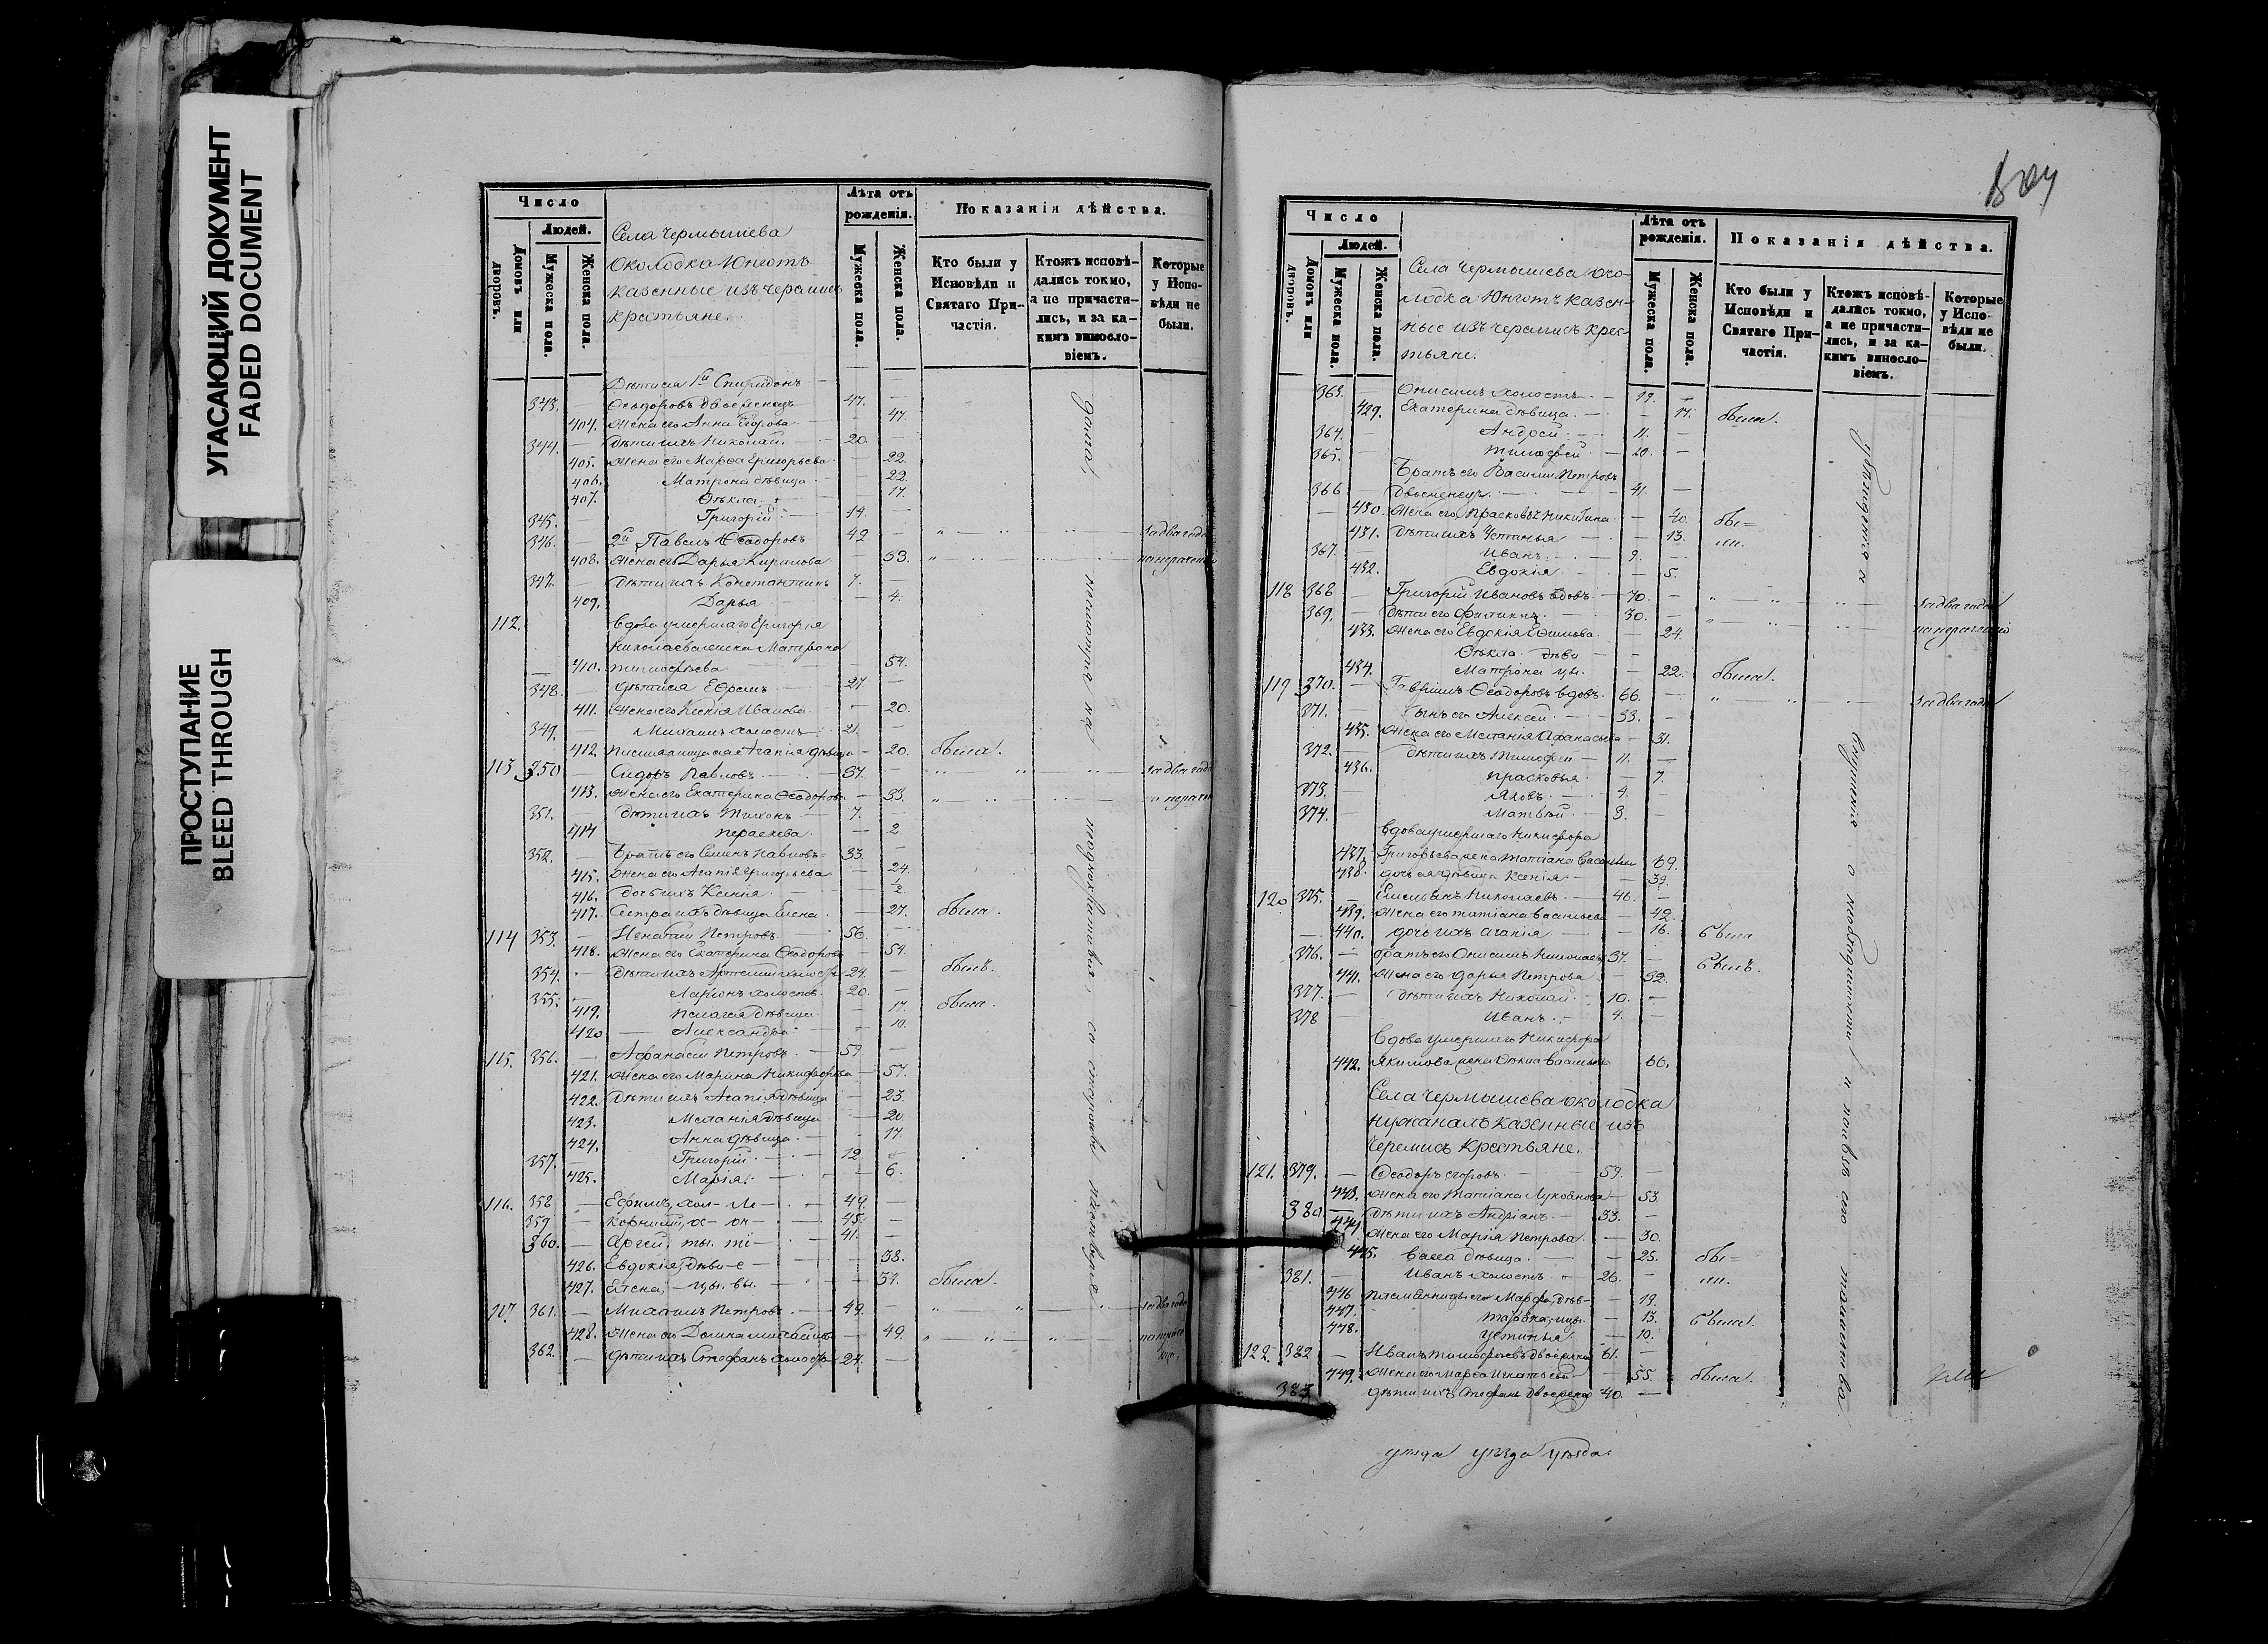 УГАСАЮЩИЙ ДОКУМЕНТ
FADED DOCUMENT
ПРОСТУПАНИЕ
BLEED THROUGH
Число
Людей.
Домовъ или дворовъ.
Мужеска пола.
Женска пола.
Села Чермышева
околодка Юнготъ
казенные изъ черемисъ
крестьяне.
Лѣта отъ рожденія.
Мужеска пола.
Женска пола.
Показанія дѣйства.
Кто были у Исповѣди и Святаго Причастія.
Ктожъ исповѣдались токмо, а не причастились, и за какимъ винословіемъ.
Которые у Исповѣди не были.
Дѣти ея 1й Спиридонъ
343. — Ѳеодоровъ двоеженецъ 47. —
404. Жена его Анна Егорова — 47.
344. — Дѣти ихъ Николай. 20. —
405. Жена его Марѳа Григорьева — 22.
406. Матрона дѣвица — 22.
407. Ѳекла — 17.
345. — Григорій 14. —
346. — 2й Павелъ Ѳеодоровъ 42. — за два года
408. Жена его Дарья Кирилова — 33. по нерачению
347. — Дѣти ихъ Константинъ 7. —
409. Дарья — 4.
112. Вдова умершаго Григорья
Николаева жена Матрона
410. Тимофѣева — 54.
348. — Дѣти ея Ефремъ 27 —
411. Жена его Ксенія Иванова — 20.
349. — Михаилъ холостъ 21. —
412. Агапія дѣвица — 20. была.
113 350 — Сидоръ Павловъ 37. — за два года
413. Жена его Екатерина Ѳеодорова — 33. по нерачению
351. — Дѣти ихъ Тихонъ 7. —
414 Параскева — 2.
352. — Братъ его Семенъ Павловъ 33. —
415. Жена его Агапія Григорьева — 24.
416. Дочь ихъ Ксенія — 1/2
417. Сестра ихъ дѣвица Елена — 27. была.
114 353. — Игнатій Петровъ 56. —
418. Жена его Екатерина Ѳеодорова — 54.
354. — Дѣти ихъ Артемій холостъ 24. — былъ.
355. — Ларіонъ холостъ 20. —
419. Пелагея дѣвица — 17. была.
420 Александра — 10.
115. 356. — Афанасій Петровъ 59 —
421. Жена его Марина Никифорова — 57.
422. Дѣти ихъ Агапія дѣвица — 23.
423. Меланія дѣвица — 20.
424. Анна дѣвица — 17.
357. — Григорій 12 —
425. Марія — 6.
116. 358 — Ефимъ, хол- 49. —
359 — Корнилій, 45. —
360. — 41. —
426. Евдокія, дѣви- 38.
427. Елена, -цы. 34. были.
117. 361. — Михаилъ Петровъ 49. — за два года
428. Жена его Домна Михайлова — 49.
362. — Дѣти ихъ Стефанъ холостъ 24. —
Число
Людей.
Домовъ или дворовъ.
Мужеска пола.
Женска пола.
Села Чермышева око-
лодка Юнготъ казен-
ные изъ черемисъ крес-
тьяне.
Лѣта отъ рожденія.
Мужеска пола.
Женска пола.
Показанія дѣйства.
Кто были у Исповѣди и Святаго Причастія.
Ктожъ исповѣдались токмо, а не причастились, и за какимъ винословіемъ.
Которые у Исповѣди не были.
363. — Онисимъ холостъ 19. —
429. Екатерина дѣвица — 17. были.
364. — Андрей 11. —
365. — Тимофей 10. —
Братъ его Василій Петровъ
366 Двоеженецъ 41. —
430. Жена его Прасковья Никитина — 40. бы=
431. Дѣти ихъ Устинья — 13. ли.
367. — Иванъ 9. —
432. Евдокія — 5.
118 368 — Григорій Ивановъ вдовъ 70. — за два года
369. — Дѣти его Филиппъ 30. — по нерачению
433. Жена его Евдокія Ефимова — 24.
Ѳекла дѣви
434. Матрона цы. — 22. были.
119 370. — Гаврилъ Ѳеодоровъ вдовъ 66. — за два года
371. — Сынъ его Алексѣй 33. —
435. Жена его Меланія Афанасьева — 31.
372. — Дѣти ихъ Тимофей 11. —
436. Прасковья — 7.
373. — Яковъ 4. —
374. — Матвѣй 3. —
Вдова умершаго Никифора
437. Григорьева жена Татіана Васильева 69.
438. дочь ея дѣвица Ксенія — 39.
120 375. — Емельянъ Николаевъ 46. —
439. Жена его Татіана Васильева — 42.
440. дочь ихъ Агапія — 16. была
376. — братъ его Онисимъ Николаевъ 37. — былъ.
441. Жена его Дарья Петрова 32.
377. — Дѣти ихъ Николай 10. —
378 — Иванъ 4. —
Вдова умершаго Никифора
442. Якимова жена Ѳекла Васильева 66.
Села Чермышева околодка
Нужаналъ казенные изъ
черемисъ крестьяне.
121. 379. — Ѳеодоръ Егоровъ 59. —
443. Жена его Татіана Лукоянова 53.
380 — Дѣти ихъ Андріанъ 33. —
444. Жена его Марія Петрова — 30.
445. Васса дѣвица — 25. бы=
381. — Иванъ холостъ 26. — ли.
446 Племянницы его Марфа, дѣв- — 19.
447. -ицы — 13. были.
448. Устинья — 10.
122. 382 — Иванъ Тимофѣевъ двоеженецъ 61. —
449. Жена его Марѳа Игнатьева — 55. была.
383 Дѣти ихъ Стефанъ двоеженецъ 40. —